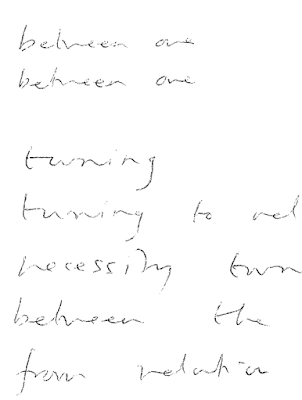 between one
between one
turning
turning to rel
necessity turn
between the
from relation